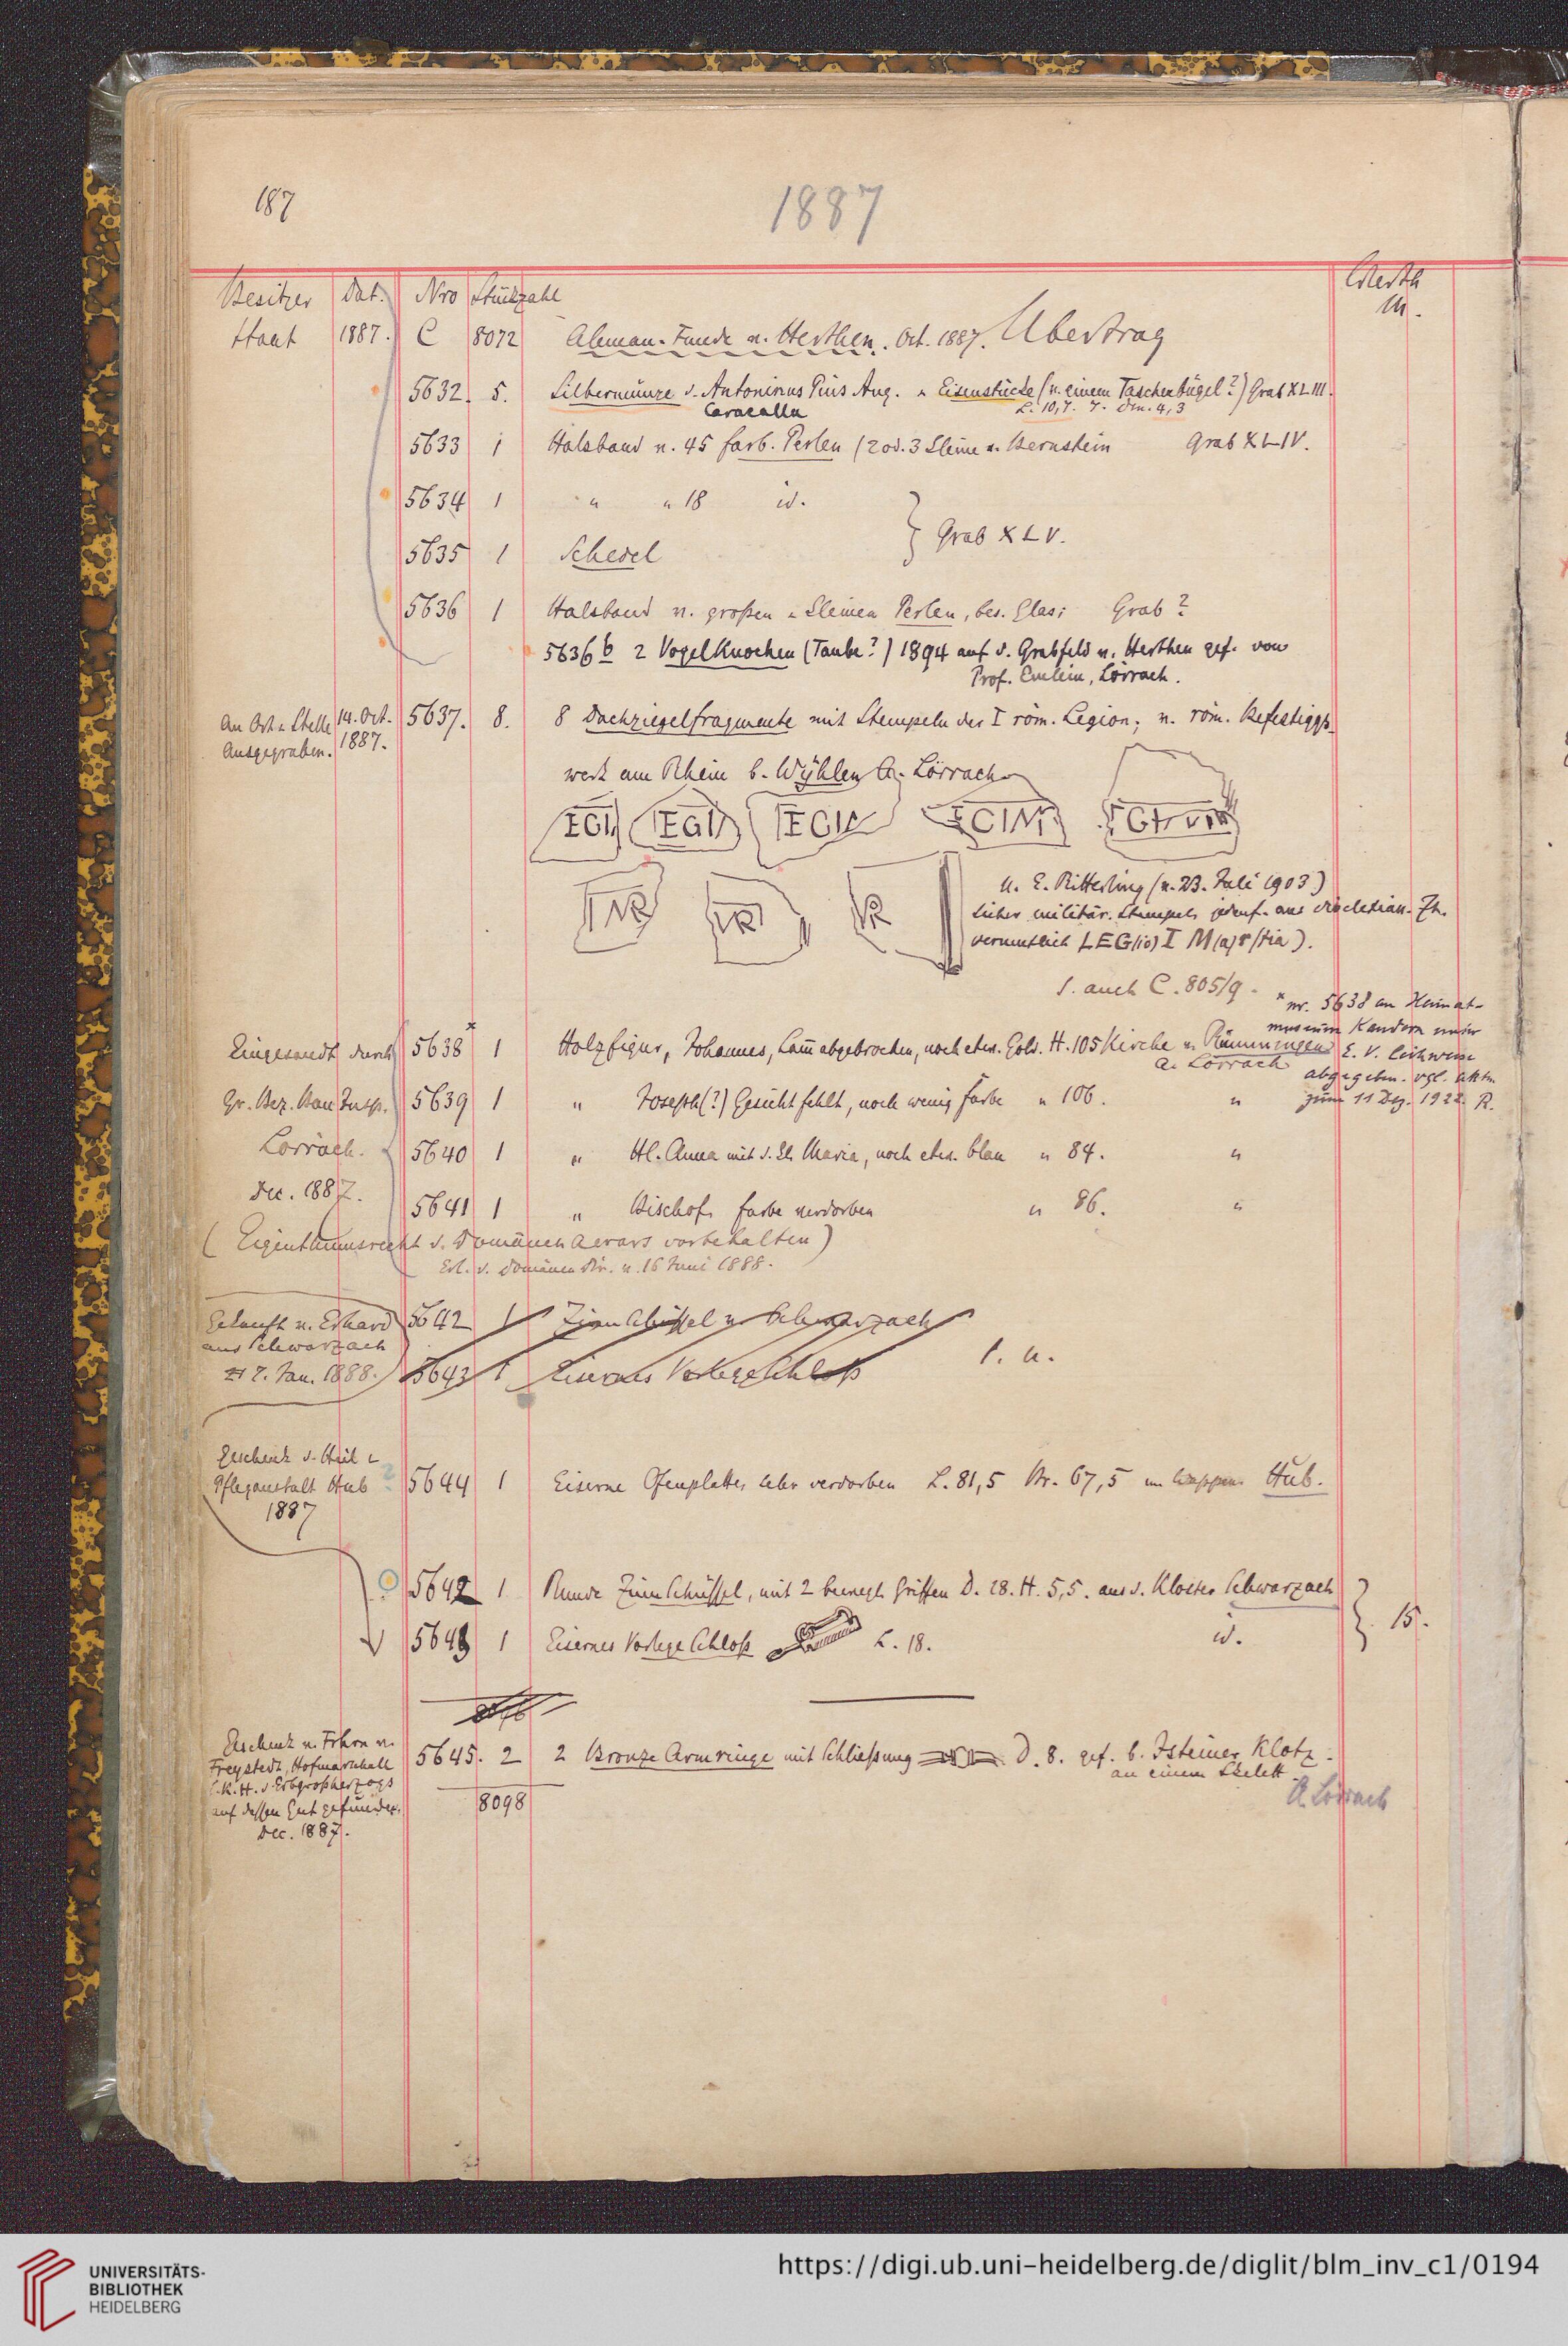 187
1887
Besitzer Dat. Nro Stückzahl Werth
M.
Staat 1887. C 8072 Aleman. Funde v. Herthen. Oct. 1887. Übertrag
5632. 5. Silbermünze v. Antoninus Pius Aug. u Eisenstücke (v. einem Taschenbügel?) Grab XLIII.
Caracalla L. 10,7. 7. dm. 4,3
5633 1 Halsband v. 45 farb. Perlen (2 od. 3 kleine v. Bernstein Grab XLIV.
5634 1 " " 18 id.
5635 1 Schedel } Grab XLV.
5636 1 Halsband v. großen u kleinen Perlen, bes. Glas; Grab?
5636 b 2 Vogelknochen (Taube?) 1894 auf d. Grabfeld v. Herthen gef. von
Prof. Emlein, Lörrach.
An Ort u Stelle 14. Oct. 5637. 8. 8 Dachziegelfragmente mit Stempeln der I röm. Legion; v. röm. Befestiggs
Ausgegraben. 1887.
werk am Rhein b. Wyhlen A. Lörrach
EGI EGI EGIV EGIM
MR VR VR
n. E. Ritterling (v. 23. Juli 1903)
sicher militär. Stempel, jedenf. aus diocletian. Zt.
vermutlich LEG(io) I M(a)r(tia).
s. auch C. 805/9.
* nr. 5638 an Heimat-
museum Kandern unter
E. V. leihweise
abgegeben. vgl. Akten
zum 11 Dez. 1922. R.
Eingesandt durch 5638 * 1 Holzfigur, Johannes, Lam̄ abgebrochen, noch etw. Gold. H. 105 Kirche v. Rümmingen
A. Lörrach
Gr. Bez. Bau Insp. 5639 1 " Joseph(?) Gesicht fehlt, noch wenig Farbe " 106. "
Lörrach. 5640 1 " Hl. Anna mit d. Maria, noch etw. blau " 84. "
Dec. 1887. 5641 1 " Bischof, Farbe verdorben " 86. "
(Eigenthumsrecht d. Domänen Aerars vorbehalten)
Erl. d. Domänen Dir. v. 16 Juni 1888.
Gekauft v. Erhard 5642 1 Zinnschüssel v. Schwarzach
aus Schwarzach
7. Jan. 1888. 5643 1 Eisernes Vorlegeschloß s. u.
Geschenk d. Heil u
Pflegeanstalt Hub 5644 1 Eiserne Ofenplatte, sehr verdorben L. 81,5 Br. 67,5 m Wappen Hub.
1887
5642 1 Runde Zinnschüssel, mit 2 bewegl. Griffen D. 28. H. 5,5. aus d. Kloster Schwarzach
5643 1 Eisernes Vorlegeschloß L. 18. id. } 15.
Geschenk v. Frhrn v.
Freystedt, Hofmarschall 5645. 2 2 Bronze Armringe mit Schließung D. 8. gef. b. Isteiner Klotz.
S. K. H. d. Erbgroßherzogs an einem Skelett
auf dessen Gut gefunden. 8098 A. Lörrach
Dec. 1887.
UNIVERSITÄTS-
BIBLIOTHEK
HEIDELBERG
https://digi.ub.uni-heidelberg.de/diglit/blm_inv_c1/0194